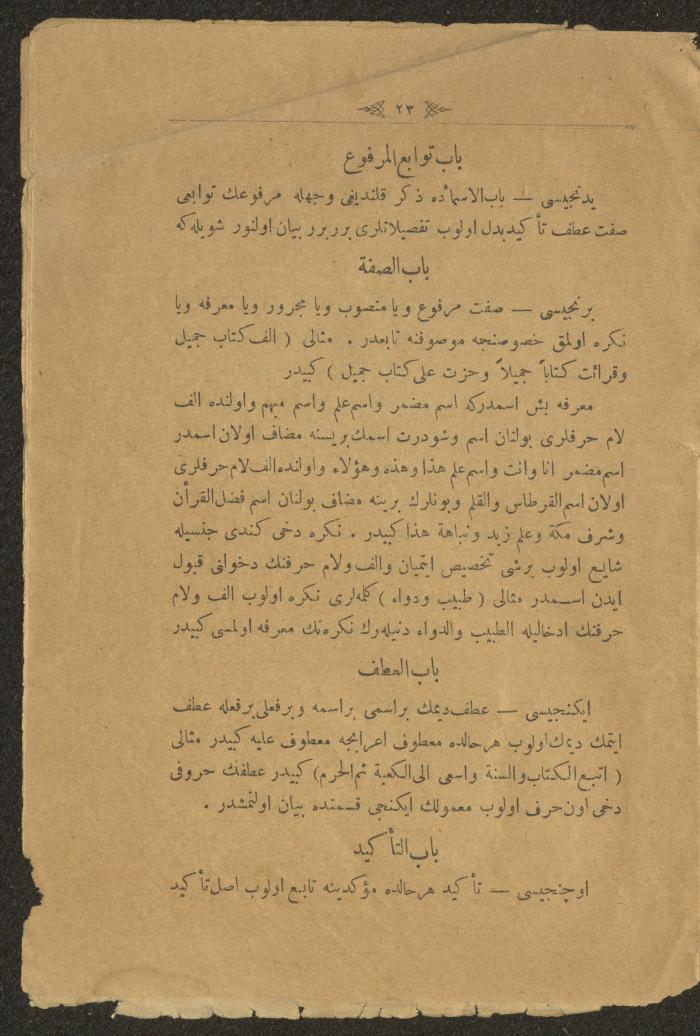 ٢٣
باب توابع المرفوع
يدنجيسى — باب الاسمأده ذكر قلنديغى وجهله مرفوعك توابعى
صفت عطف تأكيد بدل اولوب تفصيلاتلرى برر برر بيان اولنور شويله كه
باب الصفة
برنجيسى — صفت مرفوع ويا منصوب ويا مجرور ويا معرفه ويا
نكره اولمق خصوصنجه موصوفنه تابعدر . مثالى ( الف كتاب جميل
وقرائت كتاباً جميلاً وحزت على كتاب جميل ) كبيدر
معرفه بش اسمدركه اسم مضمر واسم علم واسم مبهم واولنده الف
لام حرفلرى بولنان اسم وشودرت اسمك بريسنه مضاف اولان اسمدر
اسم مضمر انا وانت واسم علم هذا وهذه وهؤلاء واولنده الف لام حرفلرى
اولان اسم القرطاس والقلم وبونلرك برينه مضاف بولنان اسم فضل القرأن
وشرف مكة وعلم زيد ونباهة هذا كبيدر . نكره دخى كندى جنسيله
شايع اولوب برشى تخصيص ايتميان والف ولام حرفنك دخوانى قبول
ايدن اسمدر مثالى ( طبيب ودواء ) كلمه لرى نكره اولوب الف ولام
حرفنك ادخاليله الطبيب والدواء دنيله رك نكره نك معرفه اولمسى كبيدر
باب العطف
ايكنجيسى — عطف ديمك براسمى براسمه وبرفعلى برفعله عطف
ايتمك ديمك اولوب هرحالده معطوف اعرابجه معطوف عليه كبيدر مثالى
( اتبع الكتاب والسنة واسعى الى الكعبة ثم الحرم ) كبيدر عطفك حروفى
دخى اون حرف اولوب معمولك ايكنجى قسمنده بيان اولنمشدر .
باب التأكيد
اوچنجيسى — تأكيد هرحالده مؤكدينه تابع اولوب اصل تأكيد